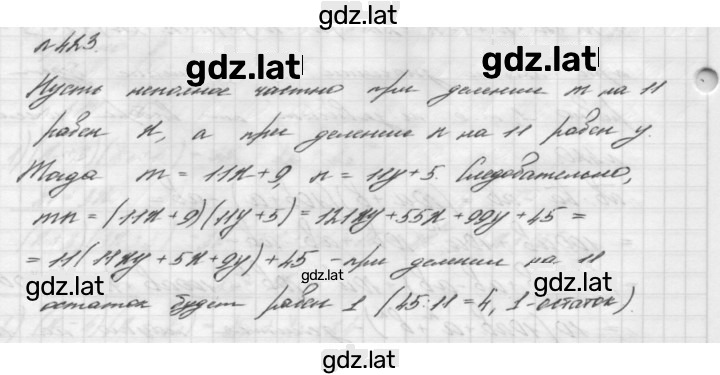 gdz.lat
№423.
gdz.lat gdz.lat
Пусть неполное частно при делении m на 11
равен x, а при делении n на 11 равен y.
Тогда m = 11x + 9, n = 11y + 5. Следовательно,
mn = (11x + 9)(11y + 5) = 121xy + 55x + 99y + 45 =
= 11(11xy + 5x + 9y) + 45 - при делении на 11
gdz.lat gdz.lat gdz.lat
остаток будет равен 1 (45:11 = 4, 1-остаток).
gdz.lat